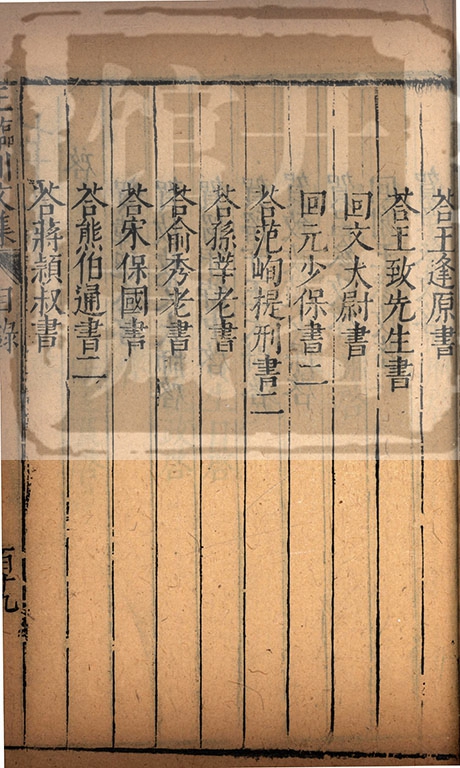 荅王逢原書
荅王致先生書
回文太尉書
回元少保書二
荅范峋提刑書二
荅孫莘老書
荅俞秀老書
荅宋保國書
荅熊伯通書二
荅蔣頴叔書
王臨川文集 目録
百十九